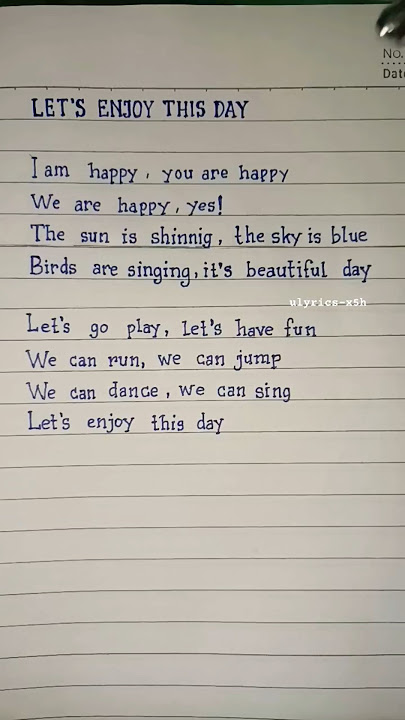 No.
Date
LET'S ENJOY THIS DAY
I am happy, you are happy
We are happy, yes!
The sun is shinnig, the sky is blue
Birds are singing, it's beautiful day
ulyrics-x5h
Let's go play, Let's have fun
We can run, we can jump
We can dance, we can sing
Let's enjoy this day